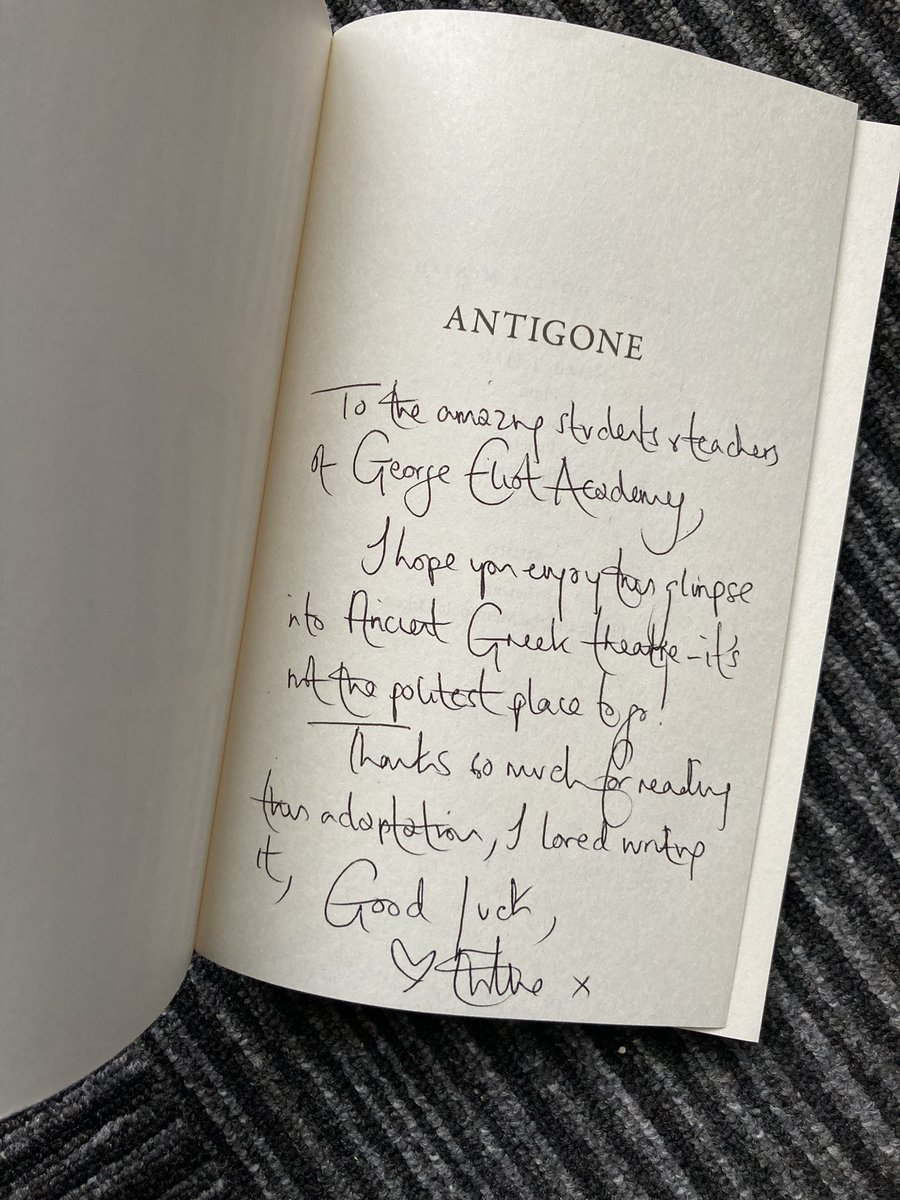 ANTIGONE
To the amazing students & teachers
of George Eliot Academy,
I hope you enjoy this glimpse
into Ancient Greek theatre - it's
not the politest place to go!
Thanks so much for reading
this adaptation, I loved writing
it,
Good luck,
x